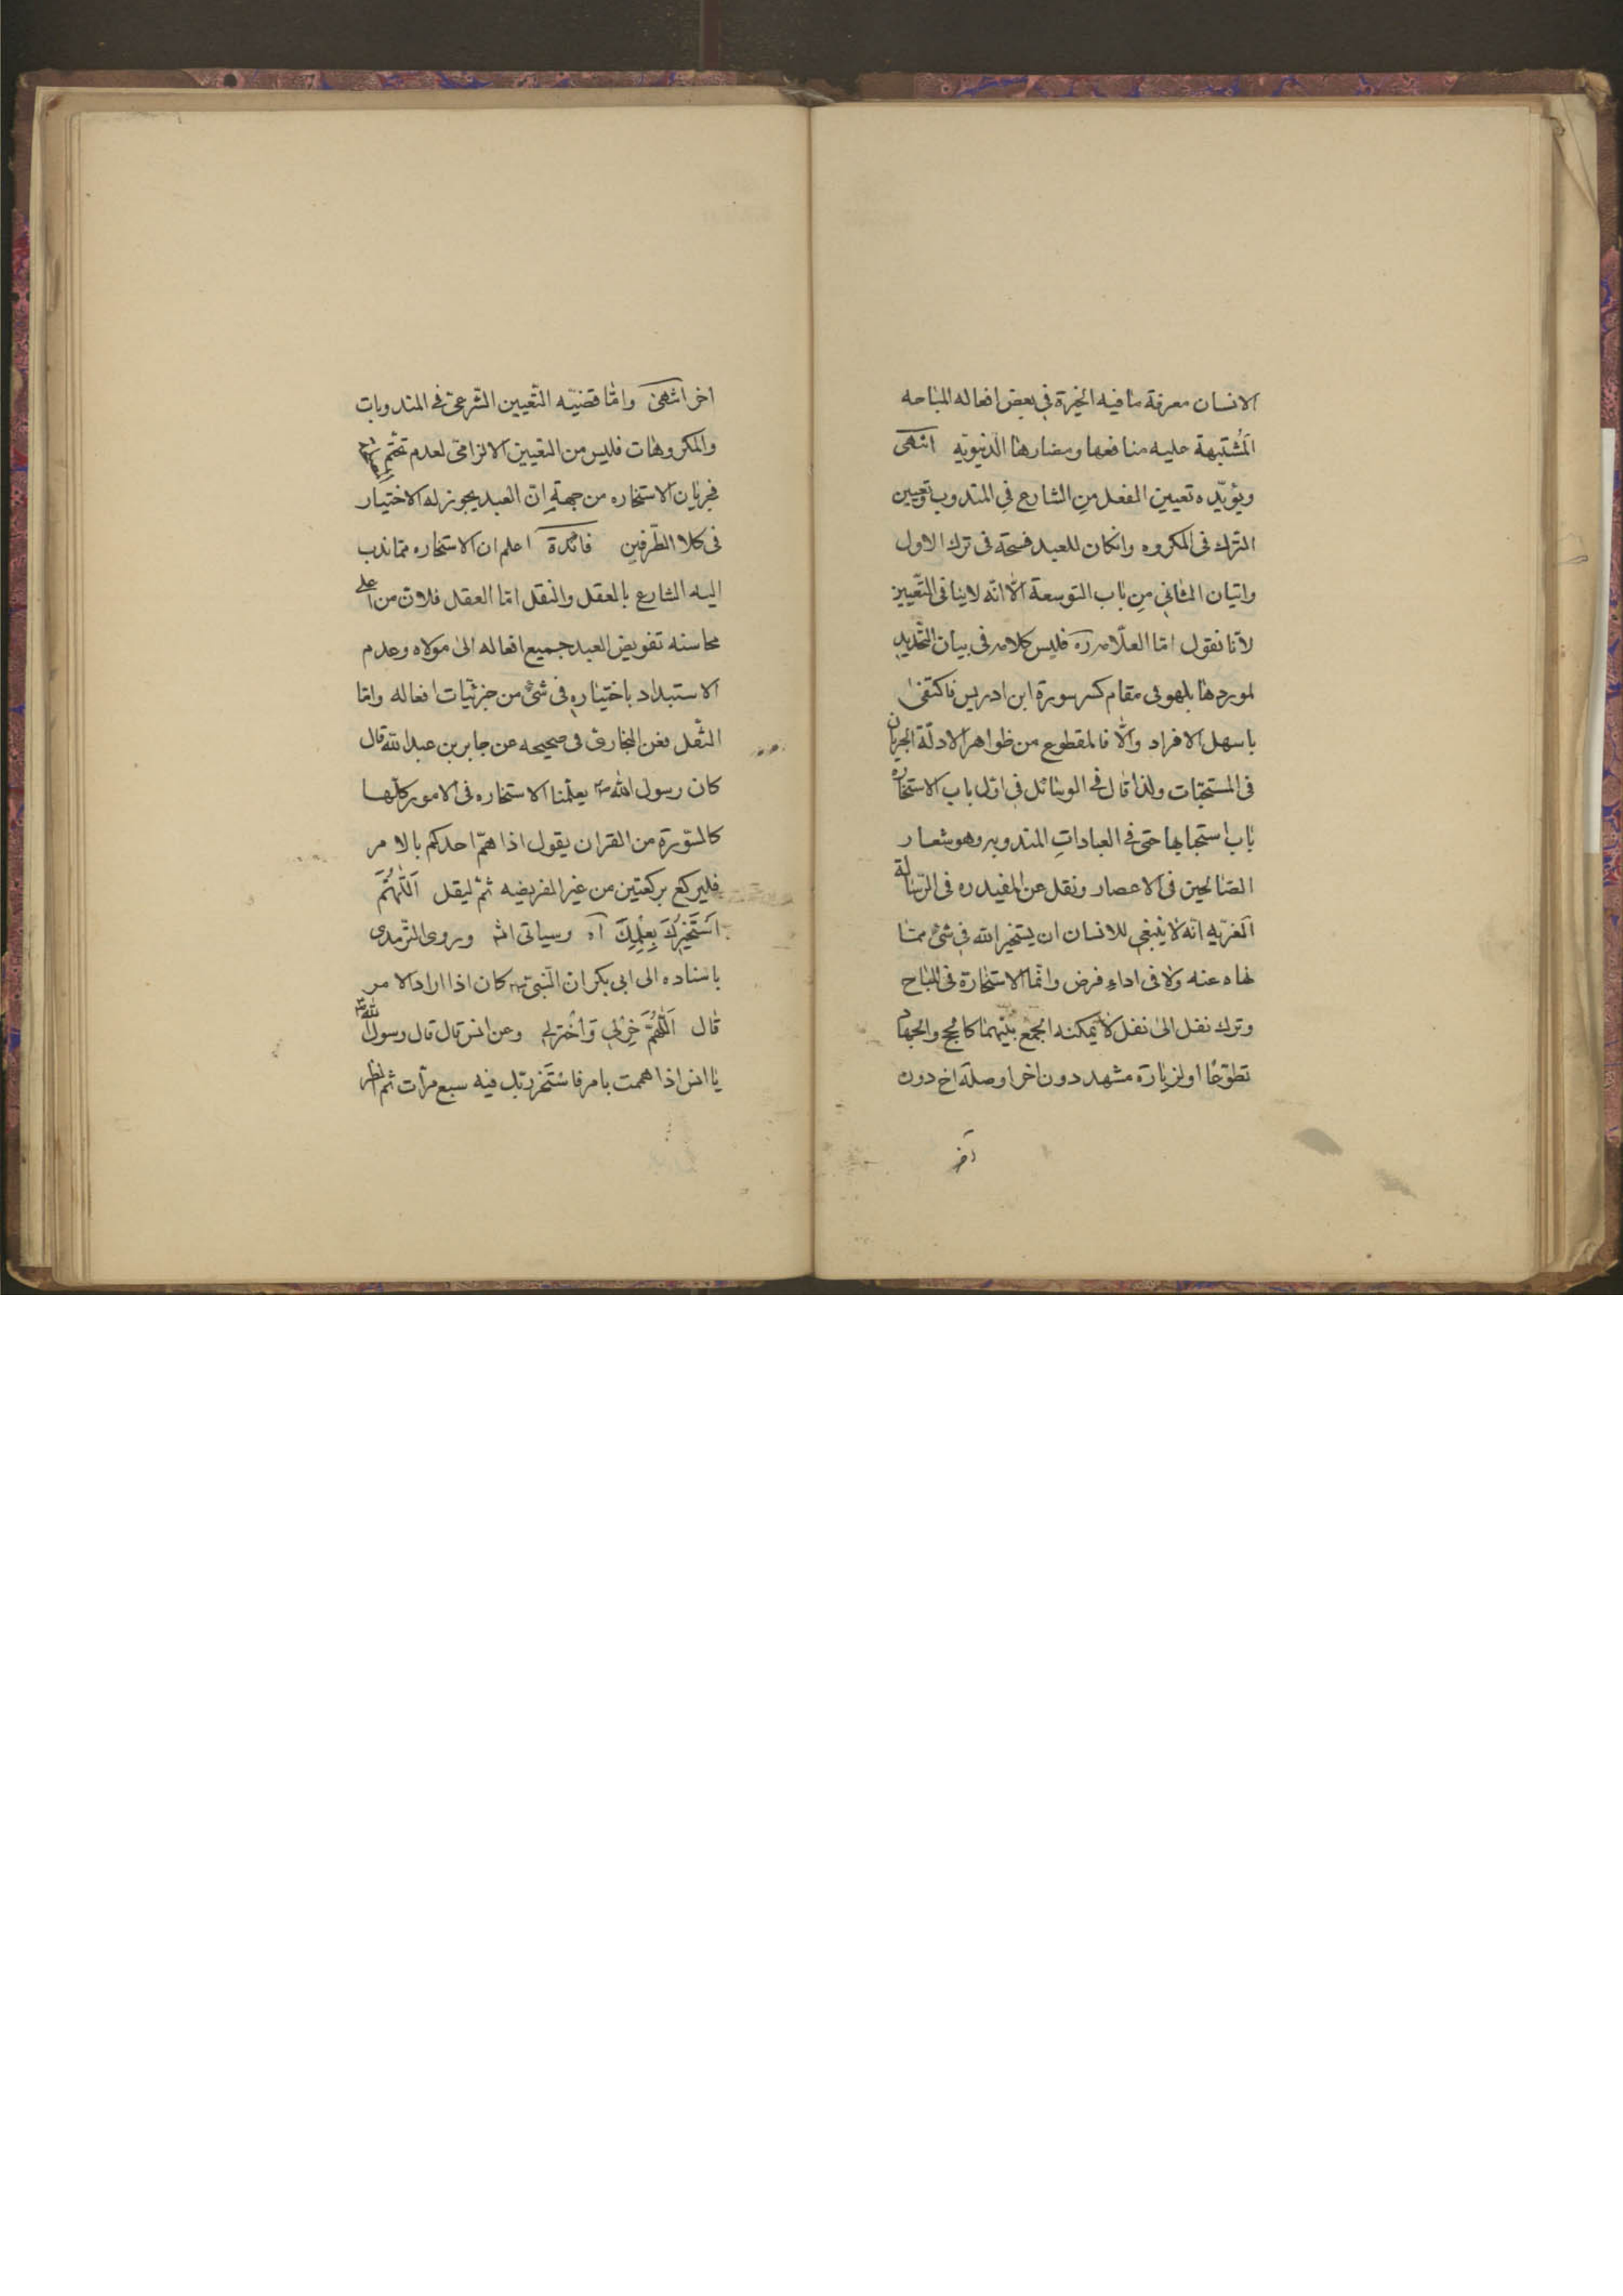 الانسان معرفة ما فيه الخيرة في بعض افعاله المباحه
المُشتبهة عليه منافعها ومضارها الدنيويّه انتهى
ويؤيّده تعيين الفعل مِن الشارع في المندوب وتعيين
الترك فى المكروه وانكان للعبد فسحة فى ترك الاول
واتيان الثانى مِن باب التوسعة الّا انّه لاينافى التّعيين
لأنّا نقول امّا العلّامه ره فليس كلامه فى بيان التّحديد
لموردها بل هو في مقام كسر سورة ابن ادريس فاكتفىٰ
باسهل الافراد والّا فالمقطوع من ظواهر الادلّة الجريان
فى المستحبّات ولذا قال في الوسائل في اوّل باب الاستخاره
باب استحبابها حتى في العباداتِ المندوبه وهو شعار
الصّالحين فى الاعصار ونقل عن المفيد ره فى الرّسالة
الغريّه انّه لا ينبغى للانسان ان يستخير الله في شئ ممّا
نهاه عنه ولا فى اداءِ فرض وانّما الاستخارة فى المباح
وترك نفل الىٰ نفل لا يمكنه الجمع بينهما كالحجّ والجهاد
تطوّعًا او لزيارة مشهد دون اخر او صلة اخ دون
آخر
اخر انتهىٰ وامّا قضيّه التّعيين الشّرعىّ في المندوبات
والمكروهات فليس من التعيين الالزامى لعدم تحتّم
فجريان الاستخاره من جهةِ انّ العبد يجوز له الاختيار
فى كلا الطّرفين فائدة اعلم ان الاستخاره ممّا ندب
اليه الشارع بالعقل والنقل امّا العقل فلانّ من اعلى
محاسنه تفويض العبد جميع افعاله الىٰ مولاه وعدم
الاستبداد باختياره فى شئ من جزئيّات افعاله وامّا
النّقل فعن البخارى فى صحيحه عن جابر بن عبدالله قال
كان رسول الله ص يعلّمنا الاستخاره فى الامور كلّها
كالسّورة من القران يقول اذا همّ احدكم بالامر
فليركع بركعتين من غير الفريضه ثمّ ليقل اَللّٰهُمَّ
اَستَخيرُكَ بِعِلْمِكَ آه وسياتى انش وروى الترمدى
باسناده الى ابى بكر ان النّبى ص كان اذا اراد الامر
قال اَللّٰهُمَّ خِرْلي وَاخْترلي وعن انس قال قال رسول الله ص
يا انس اذا هممت بامر فاستَخر ربّك فيه سبع مرّات ثم انظر